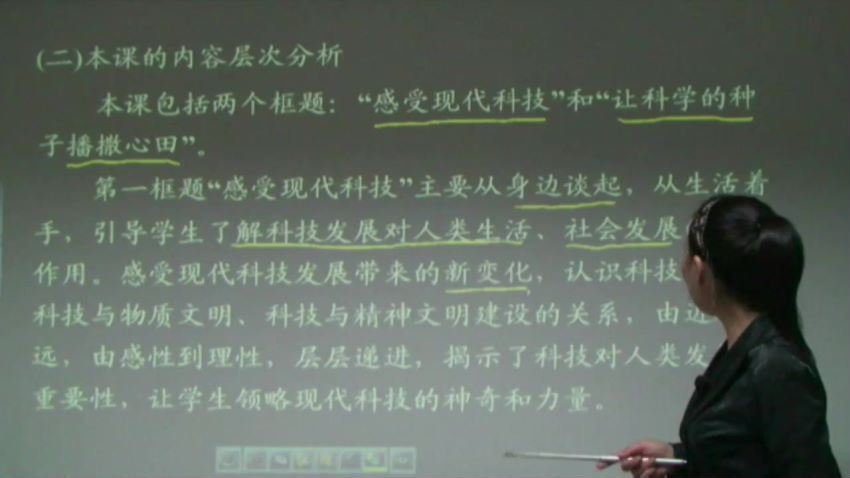 (二)本课的内容层次分析
本课包括两个框题：“感受现代科技”和“让科学的种
子播撒心田”。
第一框题“感受现代科技”主要从身边谈起，从生活着
手，引导学生了解科技发展对人类生活、社会发展
作用。感受现代科技发展带来的新变化，认识科技
科技与物质文明、科技与精神文明建设的关系，由近
远，由感性到理性，层层递进，揭示了科技对人类发
重要性，让学生领略现代科技的神奇和力量。